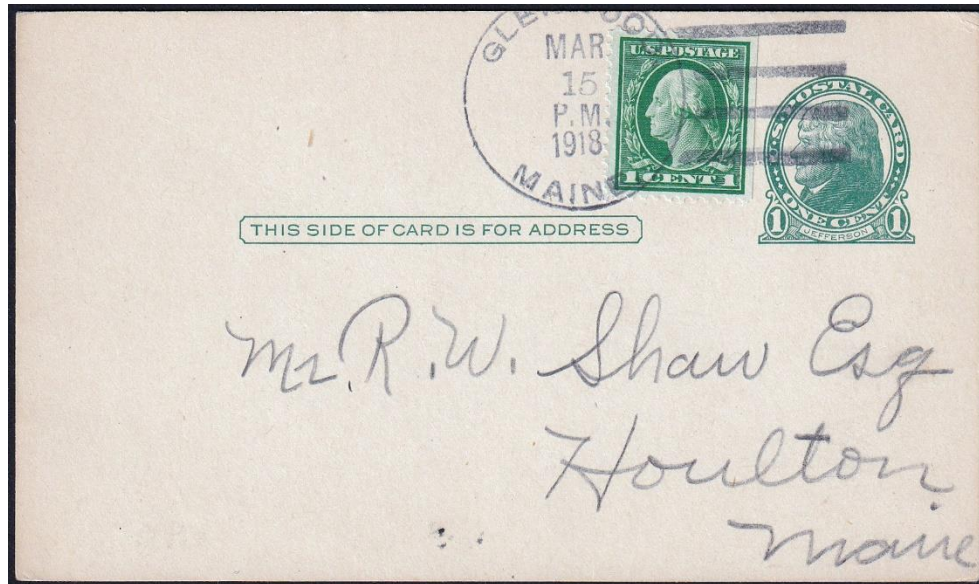 MAR
15
P.M.
1918
MAINE
U.S. POSTAGE
1 CENT 1
U.S. POSTAL CARD
ONE CENT
1 JEFFERSON 1
THIS SIDE OF CARD IS FOR ADDRESS
Mr. R. W. Shaw Esq
Houlton
Maine